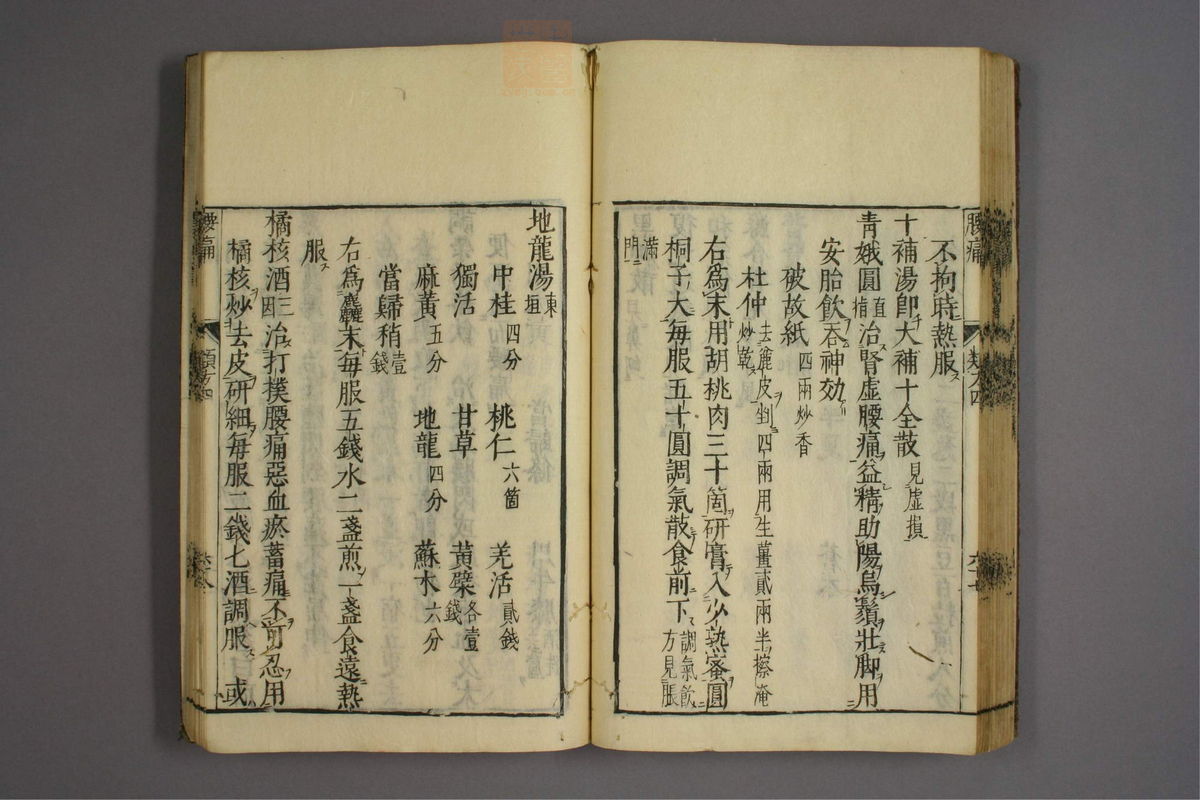 腰痛
類方四
六十七
不拘時熱服
十補湯卽大補十全散見虛損
靑娥圓直指治腎虛腰痛益精助陽烏鬚壯脚用
安胎飮吞神効
破故紙四兩炒香
杜仲去麄皮剉四兩用生薑貳兩半擦淹炒乾
右爲末用胡桃肉三十箇研膏入少熟蜜圓
桐子大每服五十圓調氣散食前下調氣飮方見脹
滿門
地龍湯東垣
中桂四分 桃仁六箇 羌活貳錢
獨活 甘草 黃檗各壹錢
麻黃五分 地龍四分 蘇木六分
當歸稍壹錢
右爲麤末每服五錢水二盞煎一盞食遠熱
服
橘核酒三四治打撲腰痛惡血瘀蓄痛不可忍用
橘核炒去皮研細每服二錢七酒調服或
腰痛
類方四
六十八